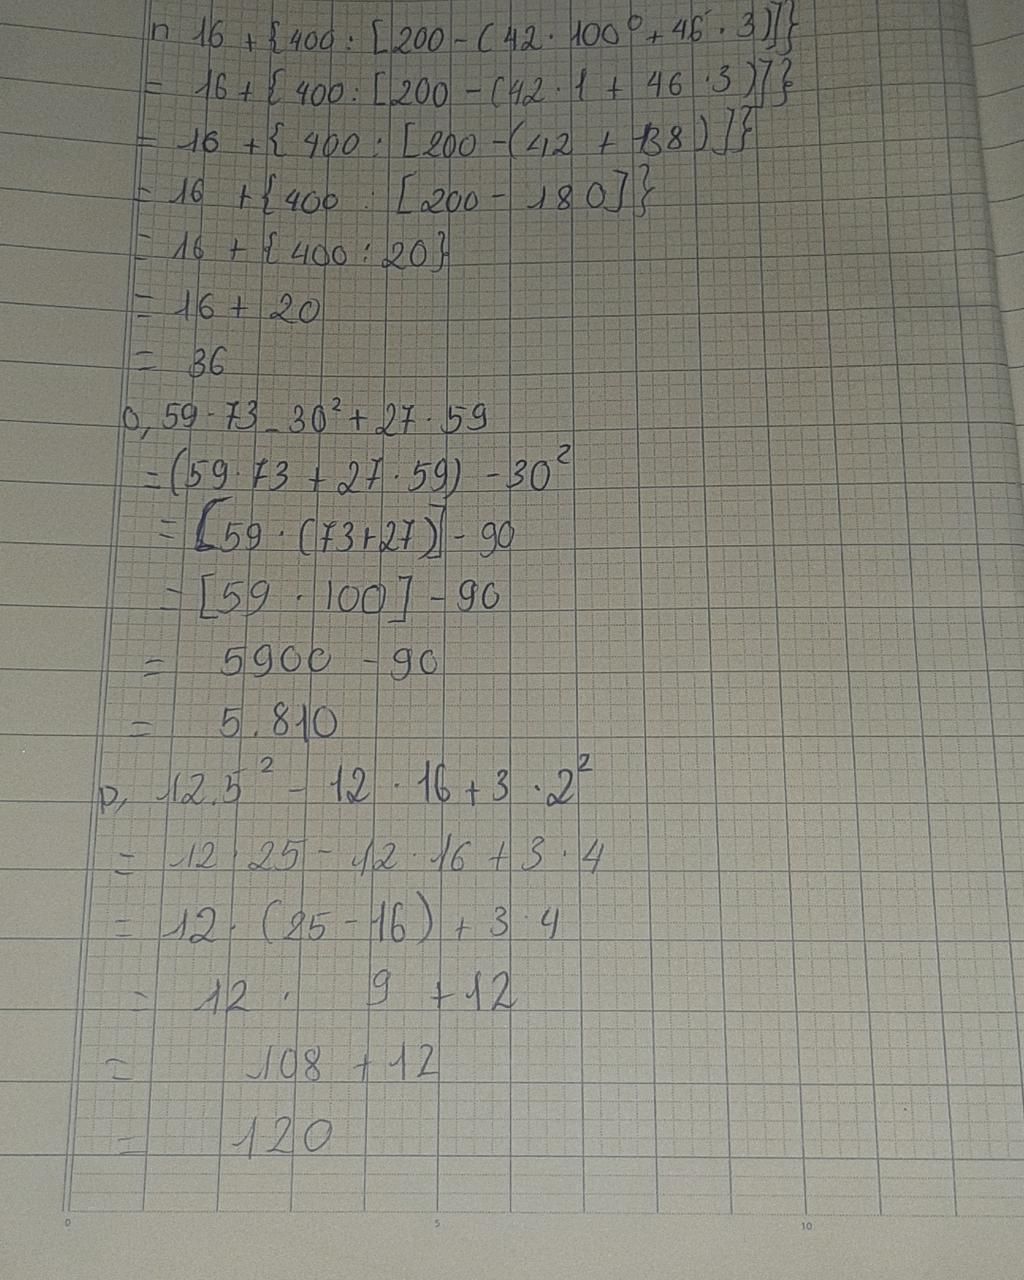 n 16 + {400 : [200 - (42 · 100⁰ + 46 · 3)]}
= 16 + {400 : [200 - (42 · 1 + 46 · 3)]}
= 16 + {400 : [200 - (42 + 138)]}
= 16 + {400 : [200 - 180]}
= 16 + {400 : 20}
= 16 + 20
= 36
o, 59 · 73 - 30² + 27 · 59
= (59 · 73 + 27 · 59) - 30²
= [59 · (73 + 27)] - 90
= [59 · 100] - 90
= 5900 - 90
= 5.810
p, 12.5² - 12 · 16 + 3 · 2²
= 12 · 25 - 12 · 16 + 3 · 4
= 12 · (25 - 16) + 3 · 4
= 12 · 9 + 12
= 108 + 12
= 120
0 5 10